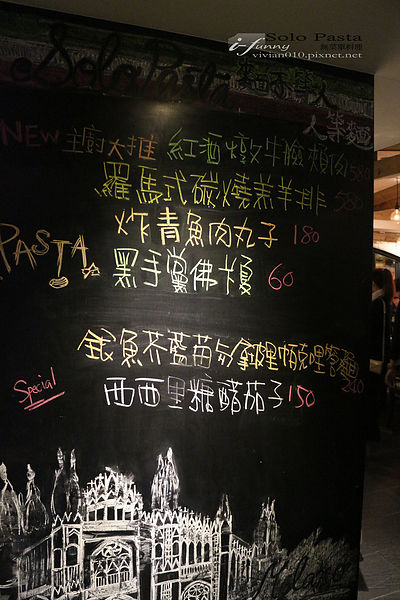 Solo Pasta
i-funny 無菜單料理
vivian010.pixnet.net
Solo Pasta
NEW 主廚大推 紅酒燉牛臉頰肉 580
羅馬式碳燒羔羊排 580
炸青魚肉丸子 180
PASTA
黑手黨佛卡夏 60
銀魚芥藍苗
管麵
Special
西西里糖醋茄子 150